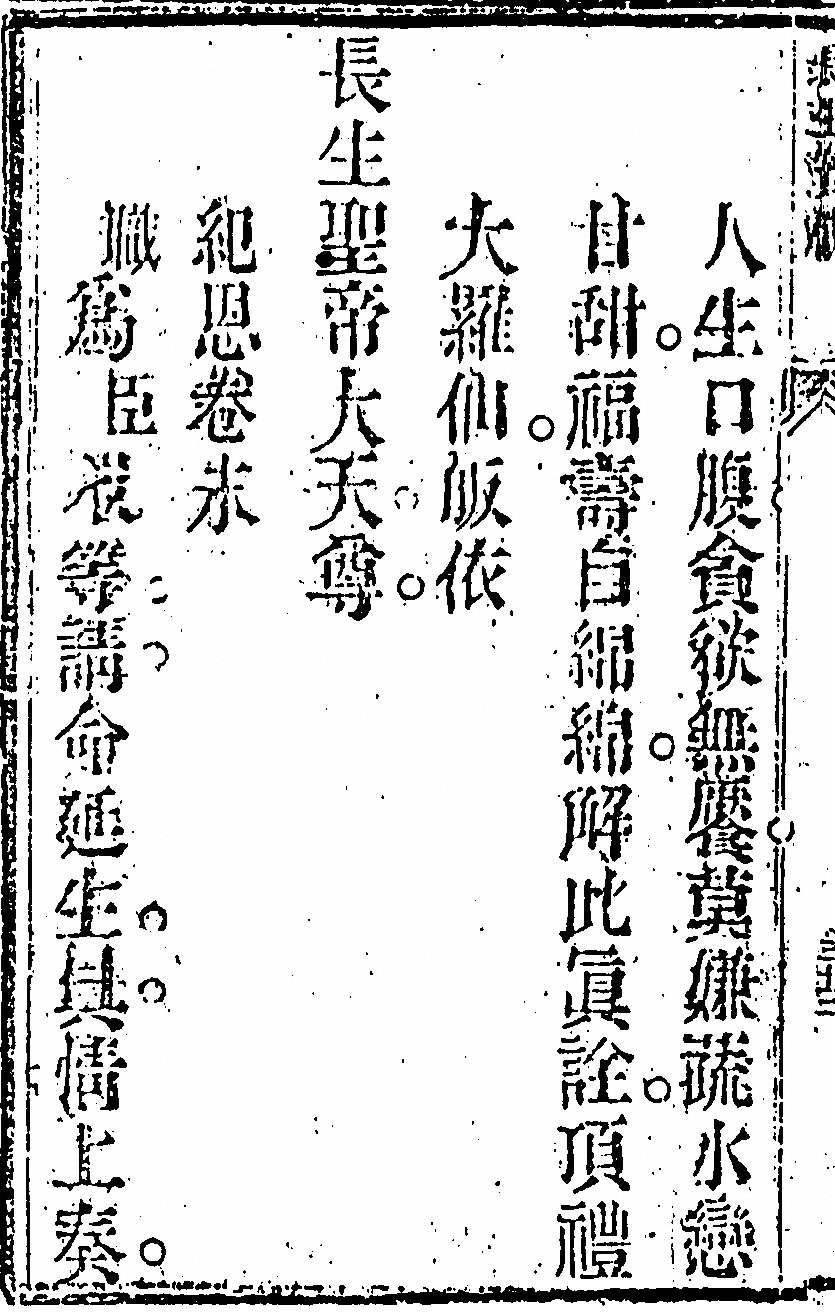 人生口腹貪欲無饜莫嫌蔬水戀
甘甜福壽自綿綿解此眞詮頂禮
大羅仙皈依
長生聖帝大天尊
紀恩卷末
職為臣眾等請命延生具情上奏